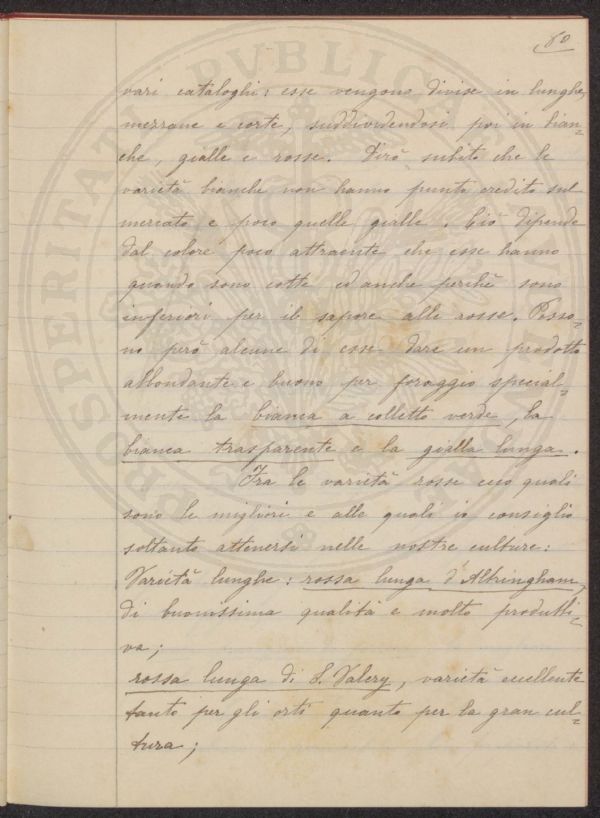 80
vari cataloghi: esse vengono divise in lunghe,
mezzane e corte, suddividendosi poi in bian=
che, gialle e rosse. Dirò subito che le
varietà bianche non hanno punto credito sul
mercato e poco quelle gialle. Ciò dipende
dal colore poco attraente che esse hanno
quando sono cotte ed anche perchè sono
inferiori per il sapore alle rosse. Posso=
no però alcune di esse dare un prodotto
abbondante e buono per foraggio special=
mente la bianca a colletto verde, la
bianca trasparente e la gialla lunga.
Fra le varietà rosse ecco quali
sono le migliori e alle quali io consiglio
soltanto attenersi nelle nostre culture:
Varietà lunghe: rossa lunga d'Altringham,
di buonissima qualità e molto produtti=
va;
rossa lunga di S. Valery, varietà eccellente
tanto per gli orti quanto per la gran cul=
tura;
PVBLICAE
PROSPERITATI